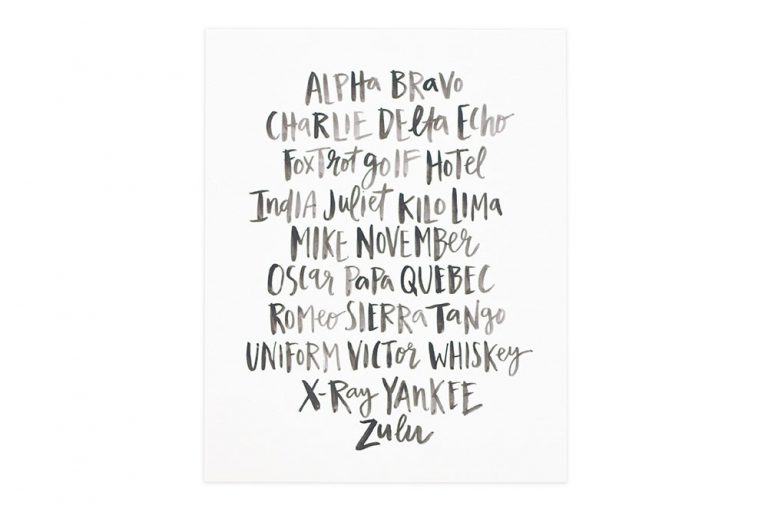 ALPHa BRaVo
CHaRLIE DElta Echo
FoxTrot golF HoTel
IndIA Juliet KILO LIMA
MIKE NOVEMBer
OScar PaPa QUEBEC
ROMeo SIERRA TaNgo
UNIFORM VICTOR WHISKey
X-Ray YANKEE
Zulu